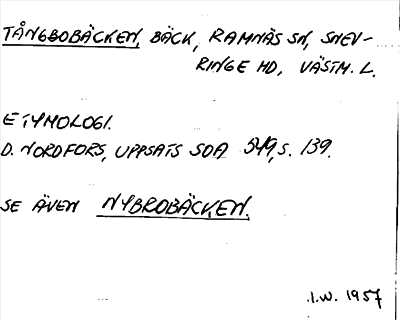 TÅNGBOBÄCKEN, BÄCK, RAMNÄS SN, SNEV-
RINGE HD, VÄSTM. L.
ETYMOLOGI.
D. NORDFORS, UPPSATS SOA 549, S. 139.
SE ÄVEN NYBROBÄCKEN.
I.W. 1957